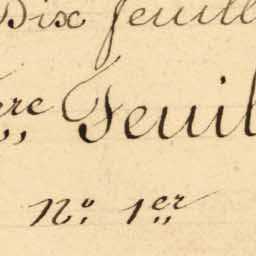 Dix feuill
ère Feuil
No. 1er